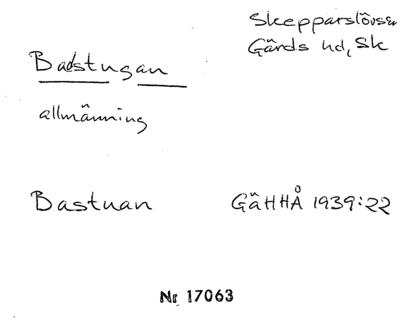 Skepparslövs sn
Gärds hd, Sk
Badstugan
allmänning
Bastuan
GäHHÅ 1939:22
Nr 17063